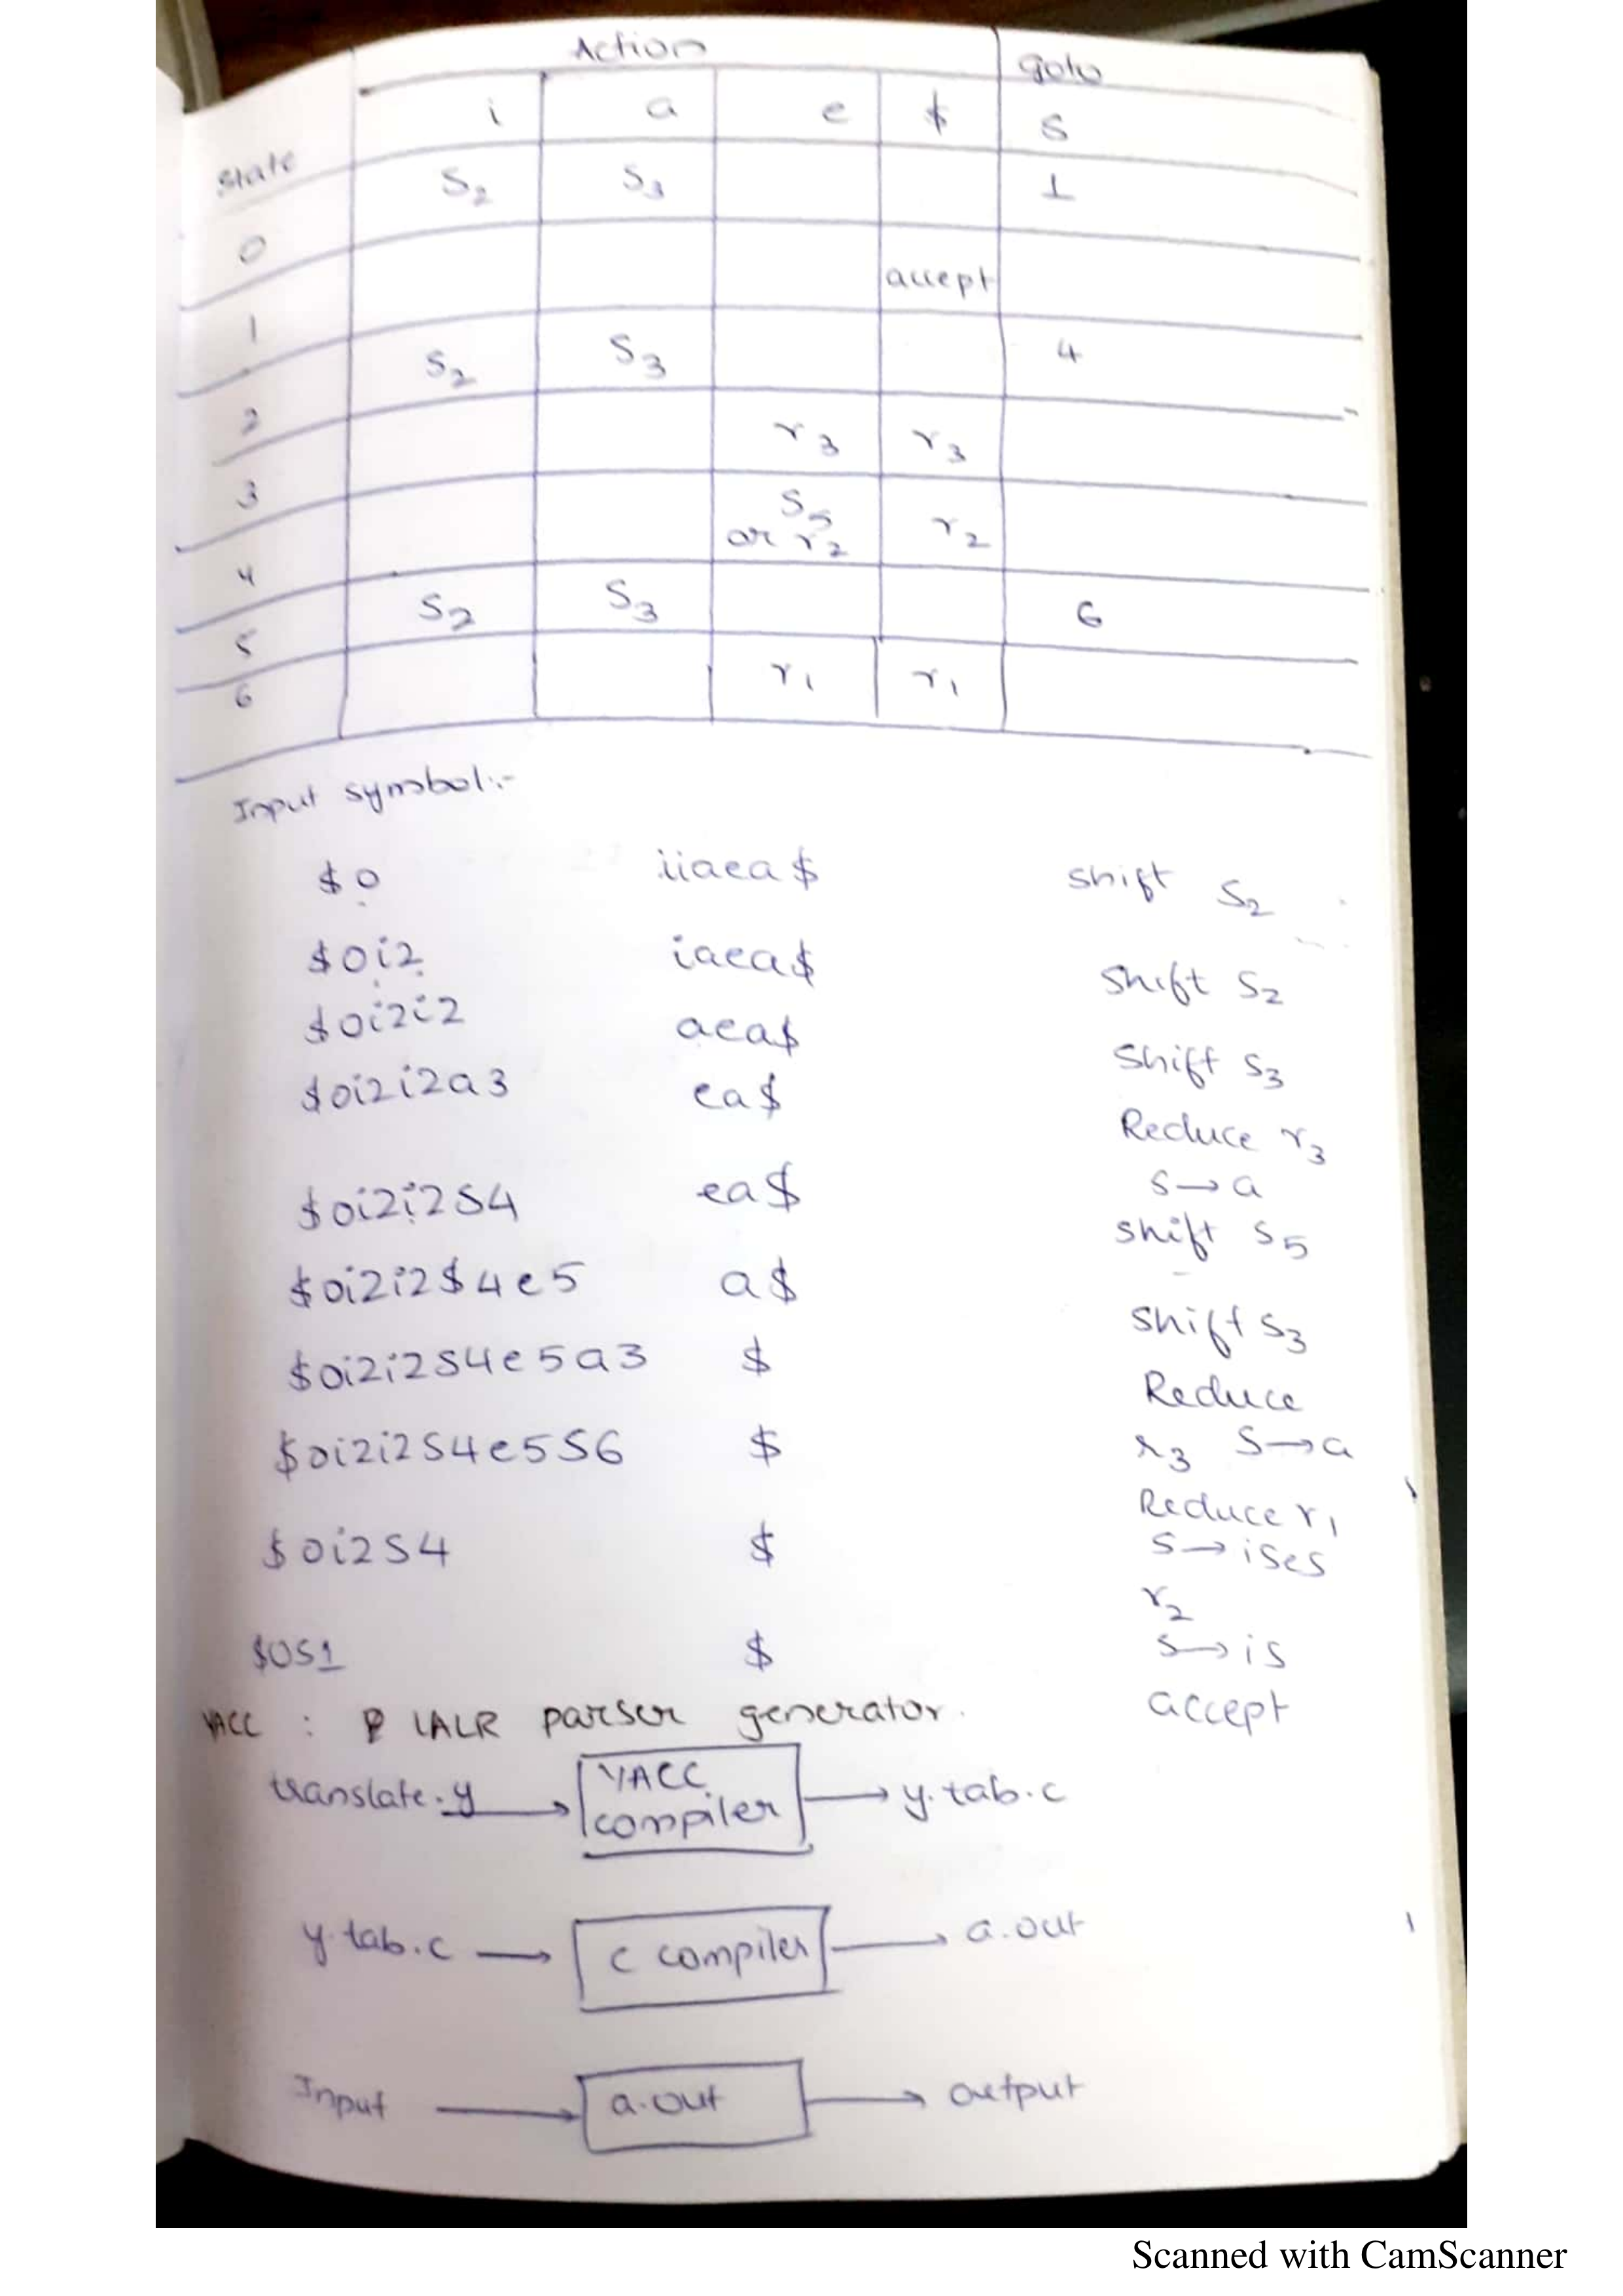 Action Goto
State i a e $ S
0 S2 S3 1
1 accept
2 S2 S3 4
3 r3 r3
4 S5 or r2 r2
5 S2 S3 6
6 r1 r1
Input symbol:-
$0 iiaea$ shift S2
$0i2 iaea$ shift S2
$0i2i2 aea$ shift S3
$0i2i2a3 ea$ Reduce r3
S→a
$0i2i2S4 ea$ shift S5
$0i2i2$4e5 a$ shift S3
$0i2i2S4e5a3 $ Reduce
r3 S→a
$0i2i2S4e5S6 $ Reduce r1
S→iSeS
$0i2S4 $ r2
S→iS
$0S1 $ accept
YACC : LALR parser generator.
translate.y → YACC compiler → y.tab.c
y.tab.c → C compiler → a.out
Input → a.out → output
Scanned with CamScanner